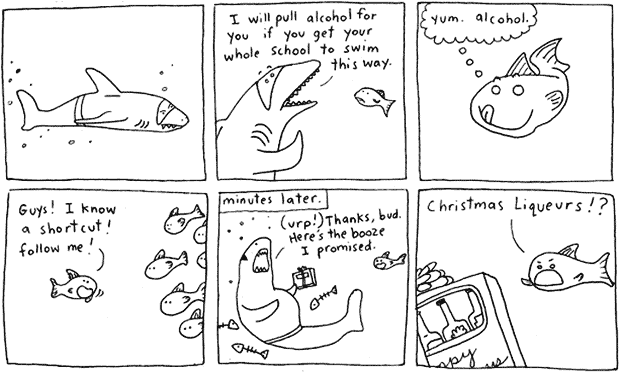 I will pull alcohol for
you if you get your
whole school to swim
this way.
yum. alcohol.
Guys! I know
a shortcut!
follow me!
minutes later.
(urp!) Thanks, bud.
Here's the booze
I promised.
Christmas Liqueurs!?